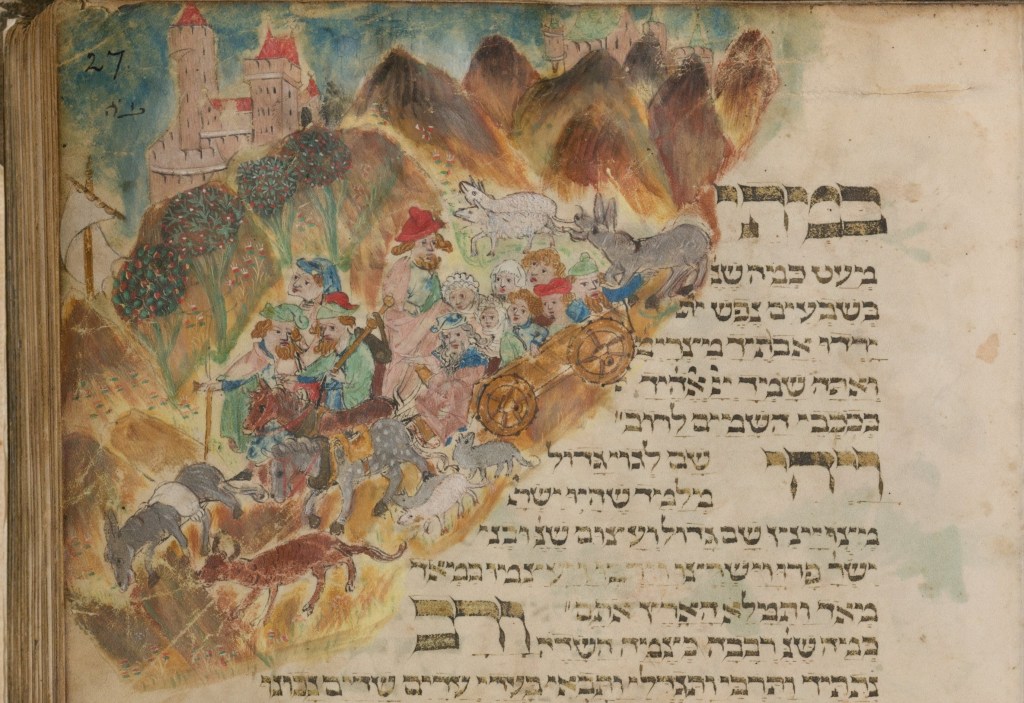 27
במתי
מעט כמה שנ
בשבעים נפש
ירדו אבתיך מצרים
ככוכבי השמים לרוב
ויהי שם לגוי גדול
מלמיד שהיו ישר
מצויינין שם גדול ועצום שנ ובני
ישר פרו וישרצו ויעצמו במאד
מאד ותמלא הארץ אתם
ורב כמה שנ רבבה כצמח השדה
נתתיך ותרבי ותגדלי ותבאי בעדי עדים שדים נכונו